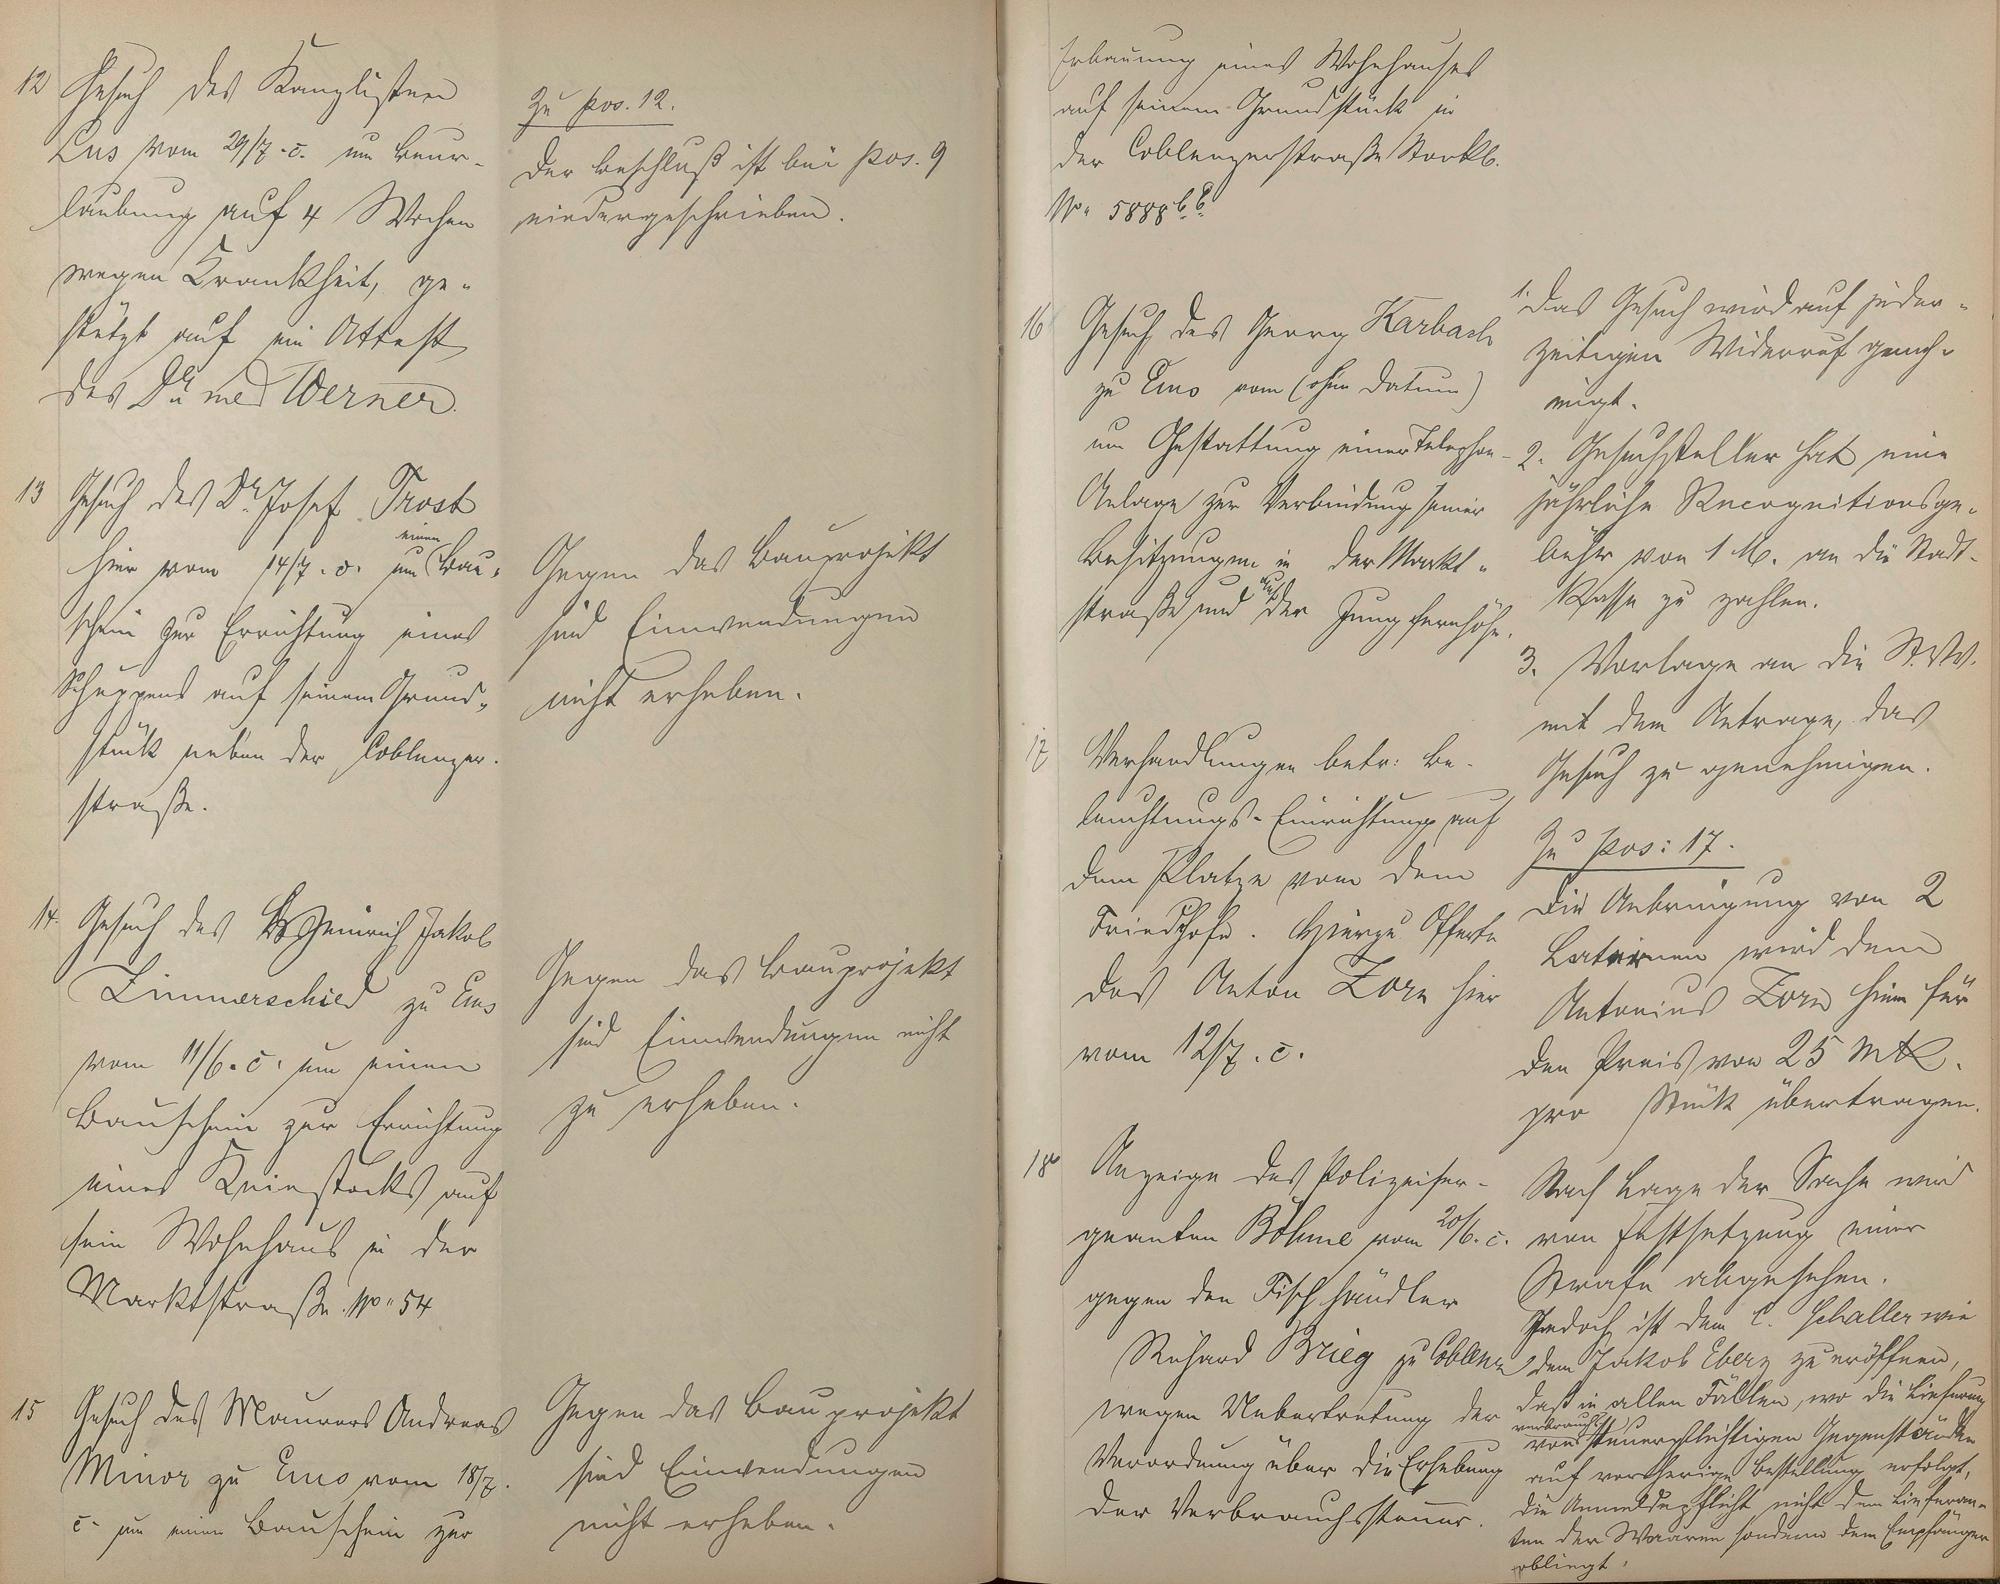 12 Gesuch des Kanzlisten
Lus vom 29/7. c. um Beur-
laubung auf 4 Wochen
wegen Krankheit, ge-
stützt auf ein Attest
des Dr. med Werner.
Zu pos. 12.
Der Beschluß ist bei pos. 9
niedergeschrieben.
13 Gesuch des Dr. Josef Trost
hier vom 14/7. c. um einen Bau-
schein zur Errichtung eines
Schuppens auf seinem Grund-
stück neben der Coblenzer-
straße.
Gegen das Bauprojekt
sind Einwendungen
nicht erheben.
14. Gesuch des Heinrich Jakob
Zimmerschied zu Ems
vom 11/6. c. um einen
Bauschein zur Errichtung
eines Kniestocks auf
sein Wohnhaus in der
Marktstraße No. 54
Gegen das Bauprojekt
sind Einwendungen nicht
zu erheben.
15 Gesuch des Maurers Andreas
Minor zu Ems vom 18/7.
c. um einen Bauschein zur
Gegen das Bauprojekt
sind Einwendungen
nicht erheben.
Erbauung eines Wohnhauses
auf seinem Grundstück in
der Coblenzerstraße Stockb.
No. 5888
16 Gesuch des Georg Karbach
zu Ems vom (ohne Datum)
um Gestattung einer Telephon-
Anlage zur Verbindung seiner
Besitzungen in der Markt-
straße und auf der Jungfernhöhe.
1. Das Gesuch wird auf jeder-
zeitigen Widerruf geneh-
migt.
2. Gesuchsteller hat eine
jährliche Recognitionsge-
bühr von 1 M. an die Stadt-
Kasse zu zahlen.
3. Vorlage an die St.V.V.
mit dem Antrage, das
Gesuch zu genehmigen.
17 Verhandlungen betr: Be-
leuchtungs-Einrichtung auf
dem Platze vom dem
Friedhofe. Hierzu Offerte
des Anton Zorn hier
vom 12/7. c.
Zu pos: 17.
Die Anbringung von 2
Laternen wird dem
Antonius Zorn hier für
den Preis von 25 Mk.
pro Stück übertragen.
18 Anzeige des Polizeiser-
geanten Böhme vom 20/6. c.
gegen den Fischhändler
Richard Brieg zu Coblenz
wegen Uebertretung der
Verordnung über die Erhebung
der Verbrauchssteuer.
Nach Lage der Sache wird
von Festsetzung einer
Strafe abgesehen.
Jedoch ist dem C. Schaller wie
dem Jakob Eberz zu eröffnen,
daß in allen Fällen, wo die Lieferung
von verbrauchssteuerpflichtigen Gegenständen
auf vorherige Bestellung erfolgt,
die Anmeldepflicht nicht dem Lieferan-
ten der Waaren sondern dem Empfänger
obliegt.